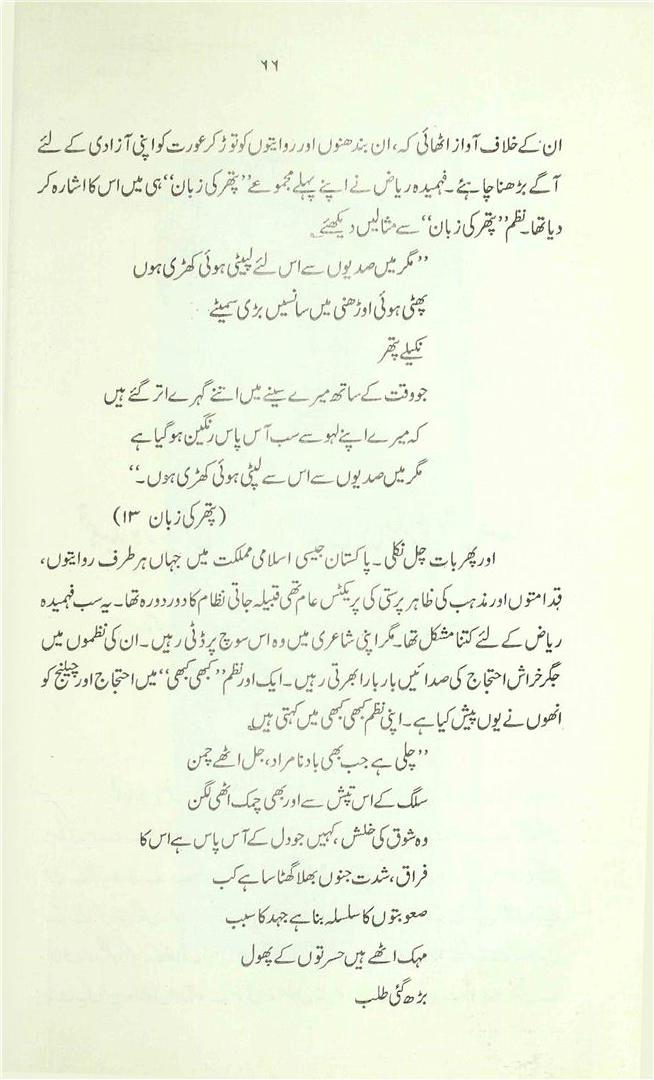 ۶۶
ان کے خلاف آواز اٹھائی کہ، ان بندھنوں اور روایتوں کو توڑ کر عورت کو اپنی آزادی کے لئے
آگے بڑھنا چاہئے۔ فہمیدہ ریاض نے اپنے پہلے مجموعے ”پتھر کی زبان“ ہی میں اس کا اشارہ کر
دیا تھا۔ نظم ”پتھر کی زبان“ سے مثالیں دیکھئے
”مگر میں صدیوں سے اس لئے لپٹی ہوئی کھڑی ہوں
پھٹی ہوئی اوڑھنی میں سانسیں بڑی سمیٹے
نکیلے پتھر
جو وقت کے ساتھ میرے سینے میں اتنے گہرے اتر گئے ہیں
کہ میرے اپنے لہو سے سب آس پاس رنگین ہو گیا ہے
مگر میں صدیوں سے اس سے لپٹی ہوئی کھڑی ہوں۔“
(پتھر کی زبان ۱۳)
اور پھر بات چل نکلی۔ پاکستان جیسی اسلامی مملکت میں جہاں ہر طرف روایتوں،
قدامتوں اور مذہب کی ظاہر پرستی کی پریکٹس عام تھی قبیلہ جاتی نظام کا دور دورہ تھا۔ یہ سب فہمیدہ
ریاض کے لئے کتنا مشکل تھا۔ مگر اپنی شاعری میں وہ اس سوچ پر ڈٹی رہیں۔ ان کی نظموں میں
جگر خراش احتجاج کی صدائیں بار بار ابھرتی رہیں۔ ایک اور نظم ”کبھی کبھی“ میں احتجاج اور چیلنج کو
انھوں نے یوں پیش کیا ہے۔ اپنی نظم کبھی کبھی میں کہتی ہیں
”چلی ہے جب بھی باد نامراد، جل اٹھے چمن
سلگ کے اس تپش سے اور بھی چمک اٹھی لگن
وہ شوق کی خلش، کہیں جو دل کے آس پاس ہے اس کا
فراق، شدت جنوں بھلا گھٹا سا ہے کب
صعوبتوں کا سلسلہ بنا ہے جہد کا سبب
مہک اٹھے ہیں حسرتوں کے پھول
بڑھ گئی طلب